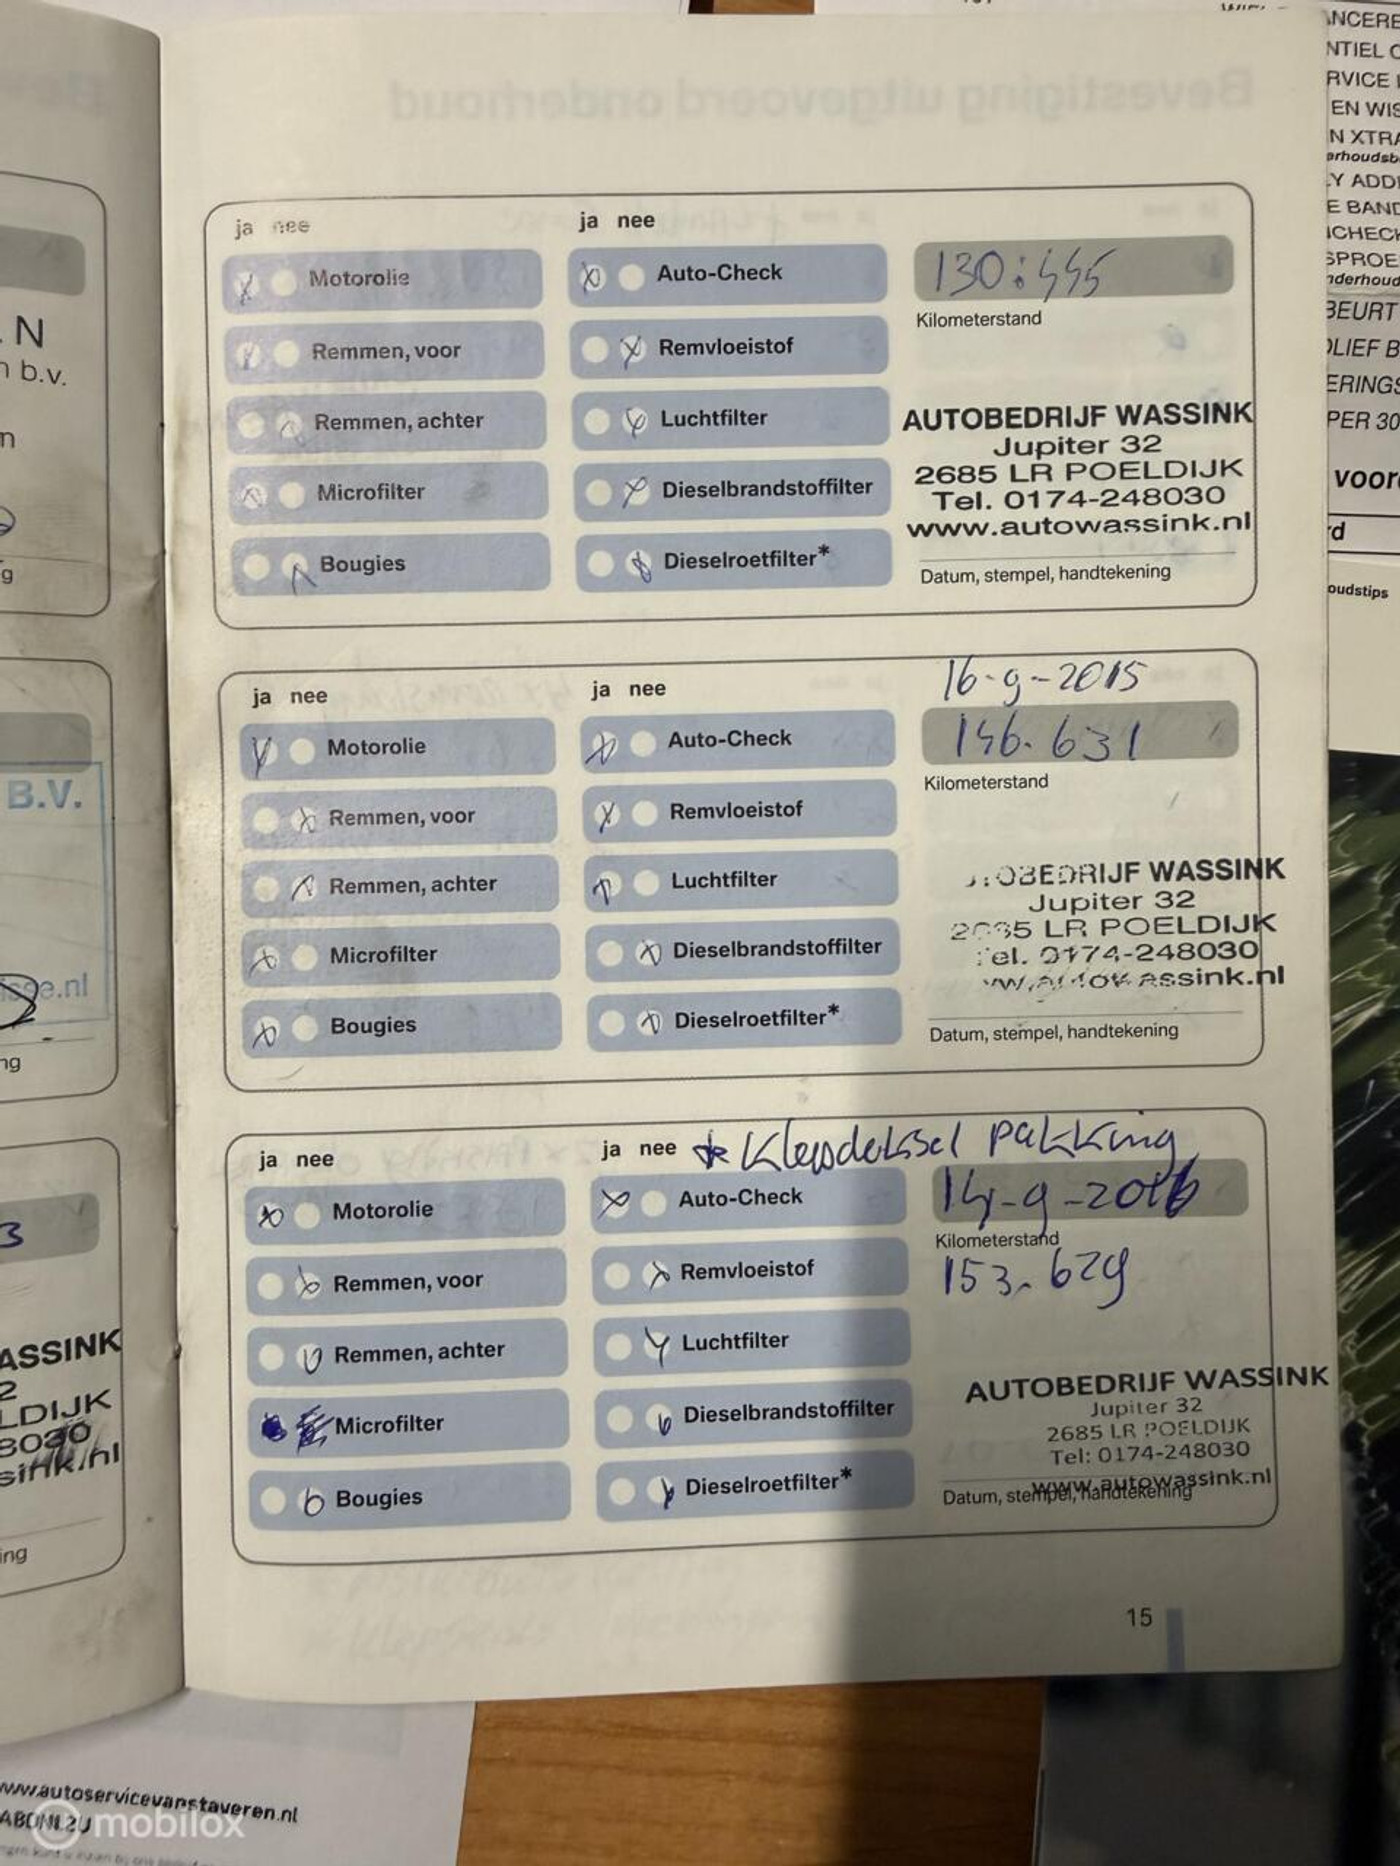 Bevestiging uitgevoerd onderhoud
ja nee
ja nee
Motorolie
Auto-Check
130:445
Kilometerstand
Remmen, voor
Remvloeistof
Remmen, achter
Luchtfilter
Microfilter
Dieselbrandstoffilter
Bougies
Dieselroetfilter*
AUTOBEDRIJF WASSINK
Jupiter 32
2685 LR POELDIJK
Tel. 0174-248030
www.autowassink.nl
Datum, stempel, handtekening
ja nee
ja nee
16-9-2015
Motorolie
Auto-Check
146.631
Kilometerstand
Remmen, voor
Remvloeistof
Remmen, achter
Luchtfilter
Microfilter
Dieselbrandstoffilter
Bougies
Dieselroetfilter*
OBEDRIJF WASSINK
Jupiter 32
2685 LR POELDIJK
Tel. 0174-248030
www.autowassink.nl
Datum, stempel, handtekening
ja nee
ja nee * Klepdeksel pakking
Motorolie
Auto-Check
14-9-2016
Kilometerstand
153.629
Remmen, voor
Remvloeistof
Remmen, achter
Luchtfilter
Microfilter
Dieselbrandstoffilter
Bougies
Dieselroetfilter*
AUTOBEDRIJF WASSINK
Jupiter 32
2685 LR POELDIJK
Tel: 0174-248030
www.autowassink.nl
Datum, stempel, handtekening
15
N
b.v.
B.V.
.nl
ng
3
ASSINK
2
LDIJK
8030
sink.nl
ing
ANCERE
NTIEL
RVICE
EN WIS
N XTRA
erhoudsb
Y ADD
E BAND
CHECK
SPROE
nderhoud
BEURT
OLIEF B
ERINGS
PER 30
voor
rd
oudstips
www.autoservicevanstaveren.nl
mobilox